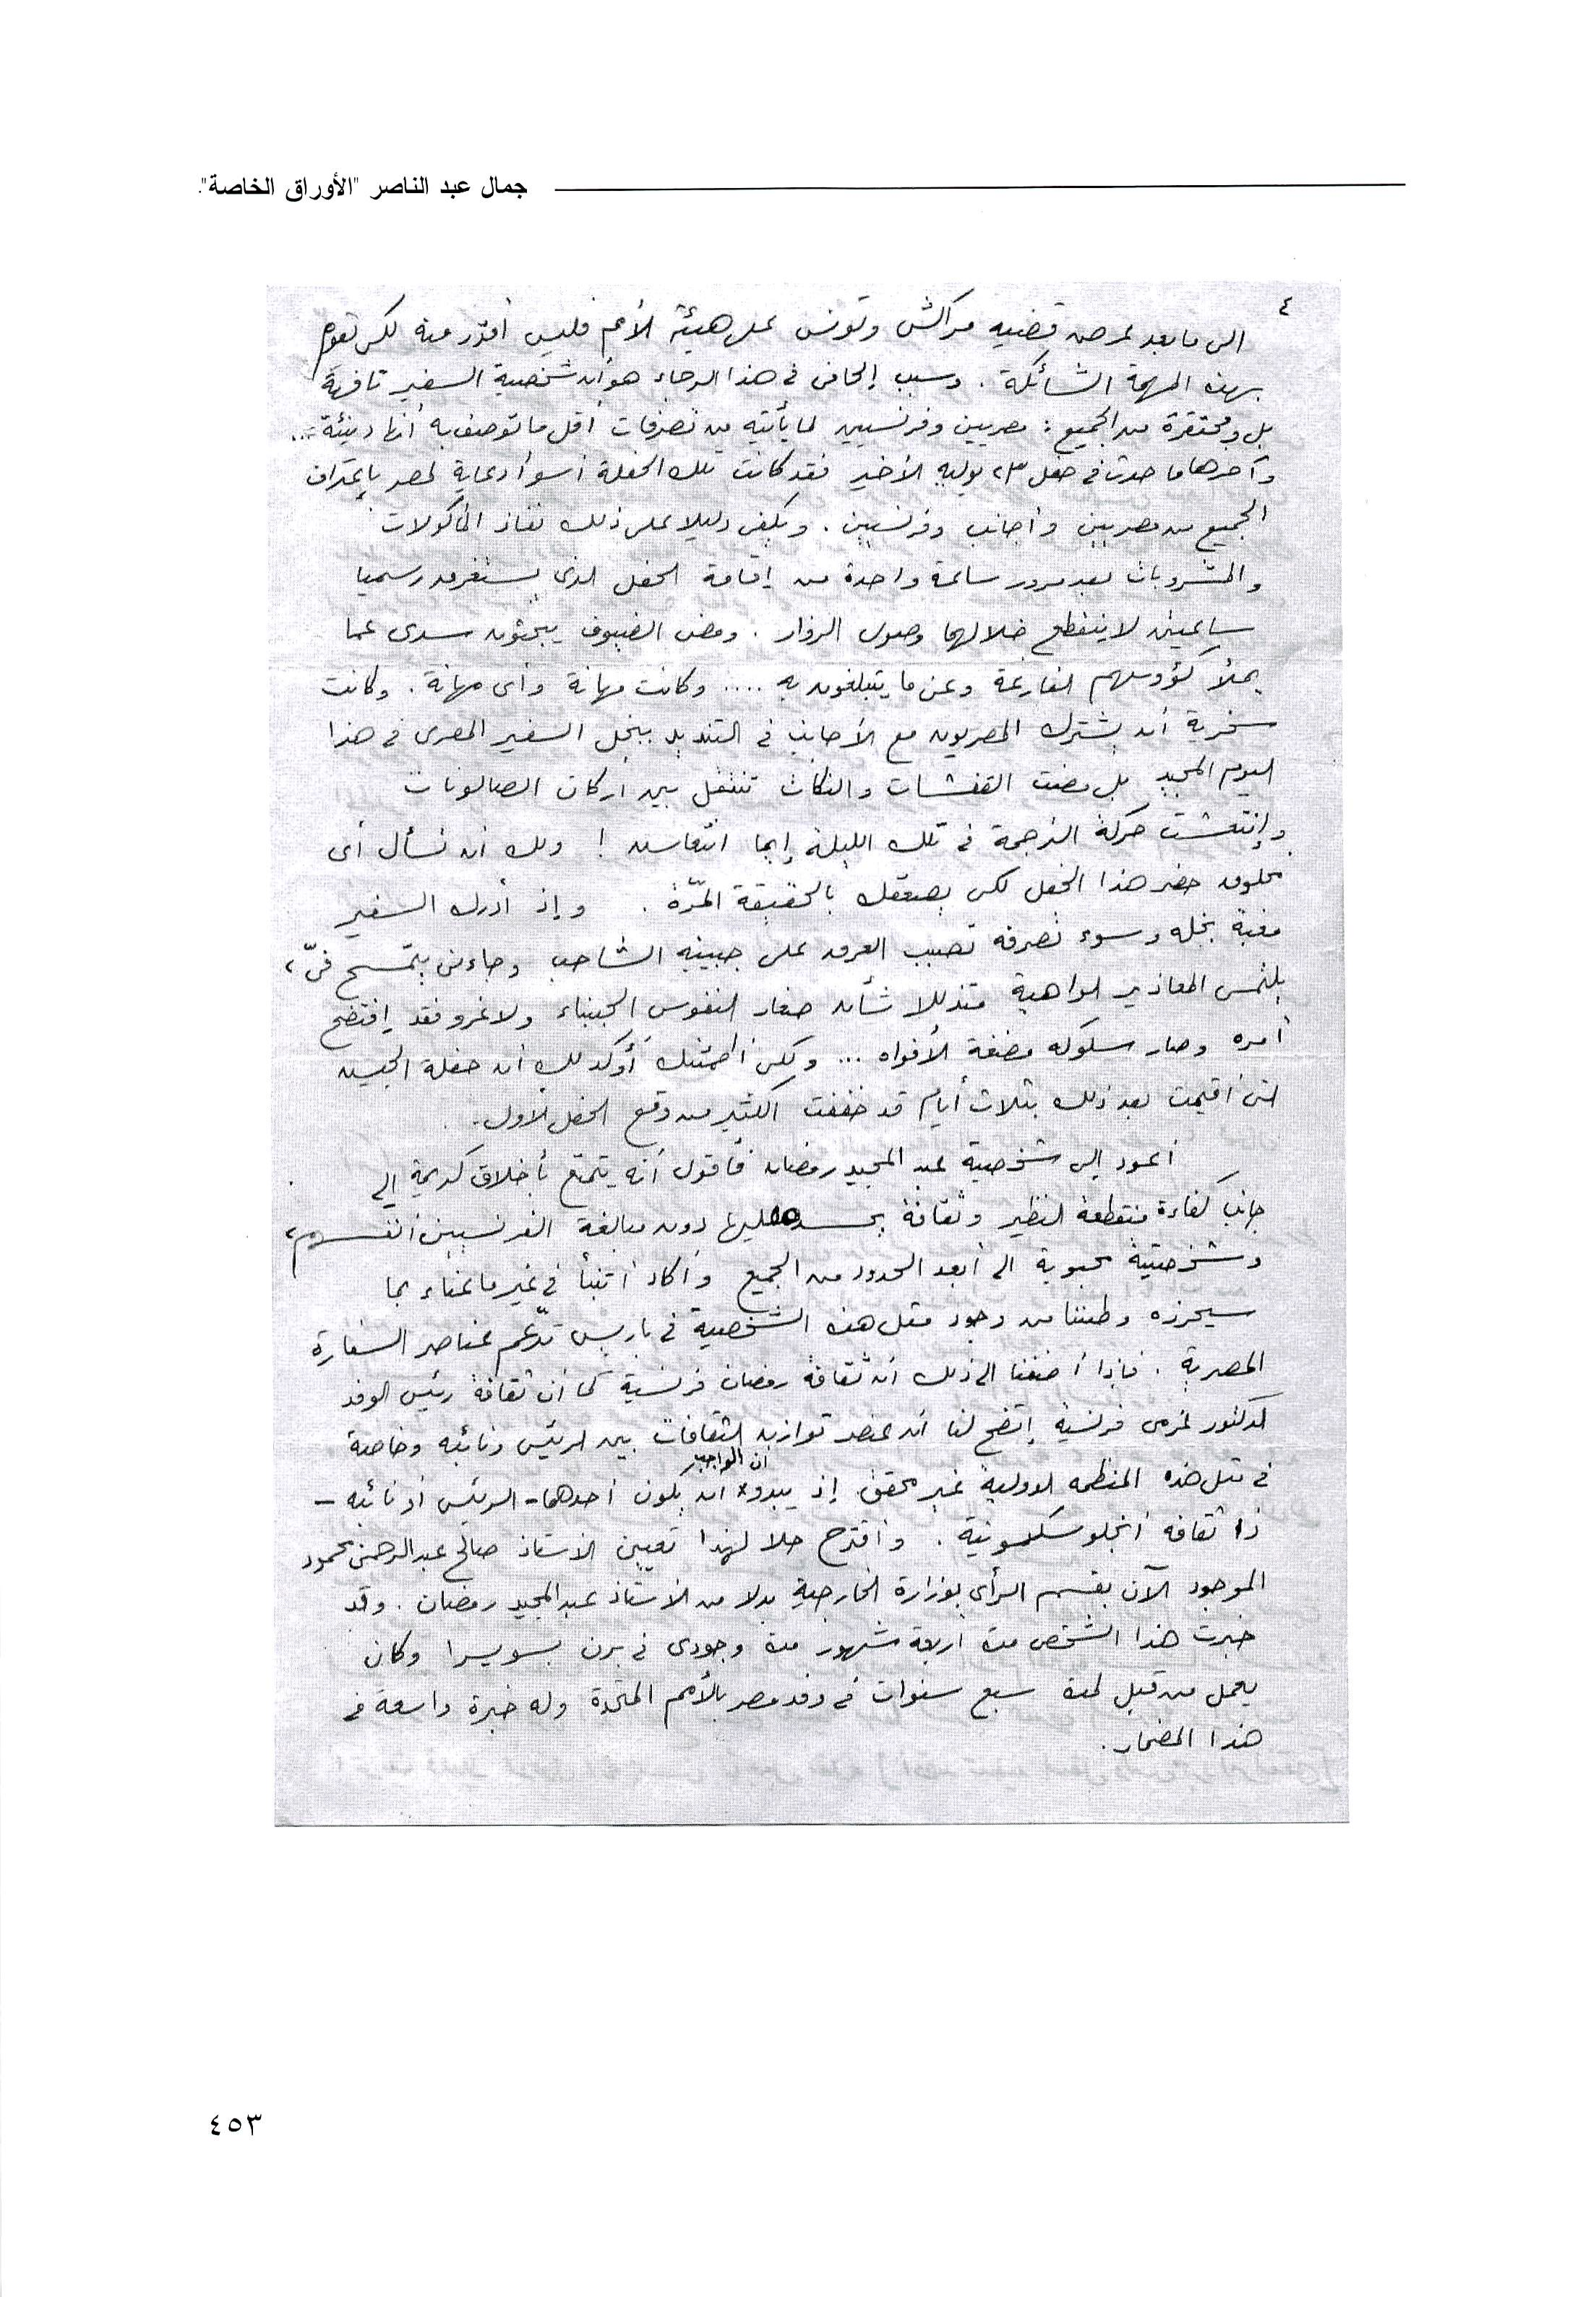 جمال عبد الناصر "الأوراق الخاصة".
٤
الى ما بعد عرض قضيه مراكش وتونس على هيئة الأمم فليس أقدر منه لكى تقوم
بهذه المهمة الشائكة . وسبب إلحاحى فى هذا الرجاء هو أن شخصية السفير تافهة
بل ومحتقرة من الجميع : مصريين وفرنسيين لما يأتيه من تصرفات أقل ما توصف به أنها دنيئة ...
وآخرها ما حدث فى حفل ٢٣ يوليه الأخير فقد كانت تلك الحفلة أسوأ دعاية لمصر بإعتراف
الجميع من مصريين وأجانب وفرنسيين . ويكفى دليلا على ذلك نفاذ المأكولات
والمشروبات بعد مرور ساعة واحدة من إقامة الحفل الذى يستغرق رسميا
ساعتين لا ينقطع خلالهما وصول الزوار . ومضى الضيوف يبحثون سدى عما
يملأ كؤوسهم الفارغة وعن ما يتبلغون به .... وكانت مهانة وأى مهانة . وكانت
سخرية أن يشترك المصريون مع الأجانب فى التنديد ببخل السفير المصرى فى هذا
اليوم المجيد بل مضت القفشات والنكات تنتقل بين أركان الصالونات
وإنتعشت حركة الترجمة فى تلك الليلة إيما انتعاش ! ولك ان تسأل أى
مخلوق حضر هذا الحفل لكى يصعقك بالحقيقة المرّة . وإذ أدرك السفير
مغبة بخله وسوء تصرفه تصبب العرق على جبينه الشاحب وجاءنى يتمسح فىّ ،
يلتمس المعاذير الواهية متذللا شأن صغار النفوس الجبناء ولا غرو فقد إفتضح
أمره وصار سلوكه مضغة الأفواه ... ولكى أطمئنك أؤكد لك أن حفلة الجيش
التى أقيمت بعد ذلك بثلاث أيام قد خففت الكثير من وقع الحفل الأول .
أعود إلى شخصية عبد المجيد رمضان فأقول أنه يتمتع بأخلاق كريمة إلى
جانب كفاءة منقطعة النظير وثقافة يحسده عليها دون مبالغة الفرنسيين أنفسهم ،
وشخصية محبوبة الى أبعد الحدود من الجميع وأكاد أتنبأ فى غير ما عناء بما
سيحرزه وطننا من وجود مثل هذه الشخصية فى باريس تدعّم عناصر السفارة
المصرية . فإذا أضفنا الى ذلك أن ثقافة رمضان فرنسية كما أن ثقافة رئيس الوفد
الدكتور عزمى فرنسية إتضح لنا أن عنصر توازن الثقافات بين الرئيس ونائبه وخاصة
فى مثل هذه المنظمه الدولية غير محقق إذ يبدو ان الواجب أن يكون أحدهما - الرئيس أو نائبه -
ذا ثقافه أنجلوسكسونية . وأقترح حلا لهذا تعيين الاستاذ صالح عبد الرحمن محمود
الموجود الآن بقسم الرأى بوزارة الخارجية بدلا من الأستاذ عبد المجيد رمضان . وقد
خبرت هذا الشخص مدة اربعة شهور مدة وجودى فى برن بسويسرا وكان
يعمل من قبل لمدة سبع سنوات فى وفد مصر بالأمم المتحدة وله خبرة واسعة فى
هذا المضمار .
٤٥٣